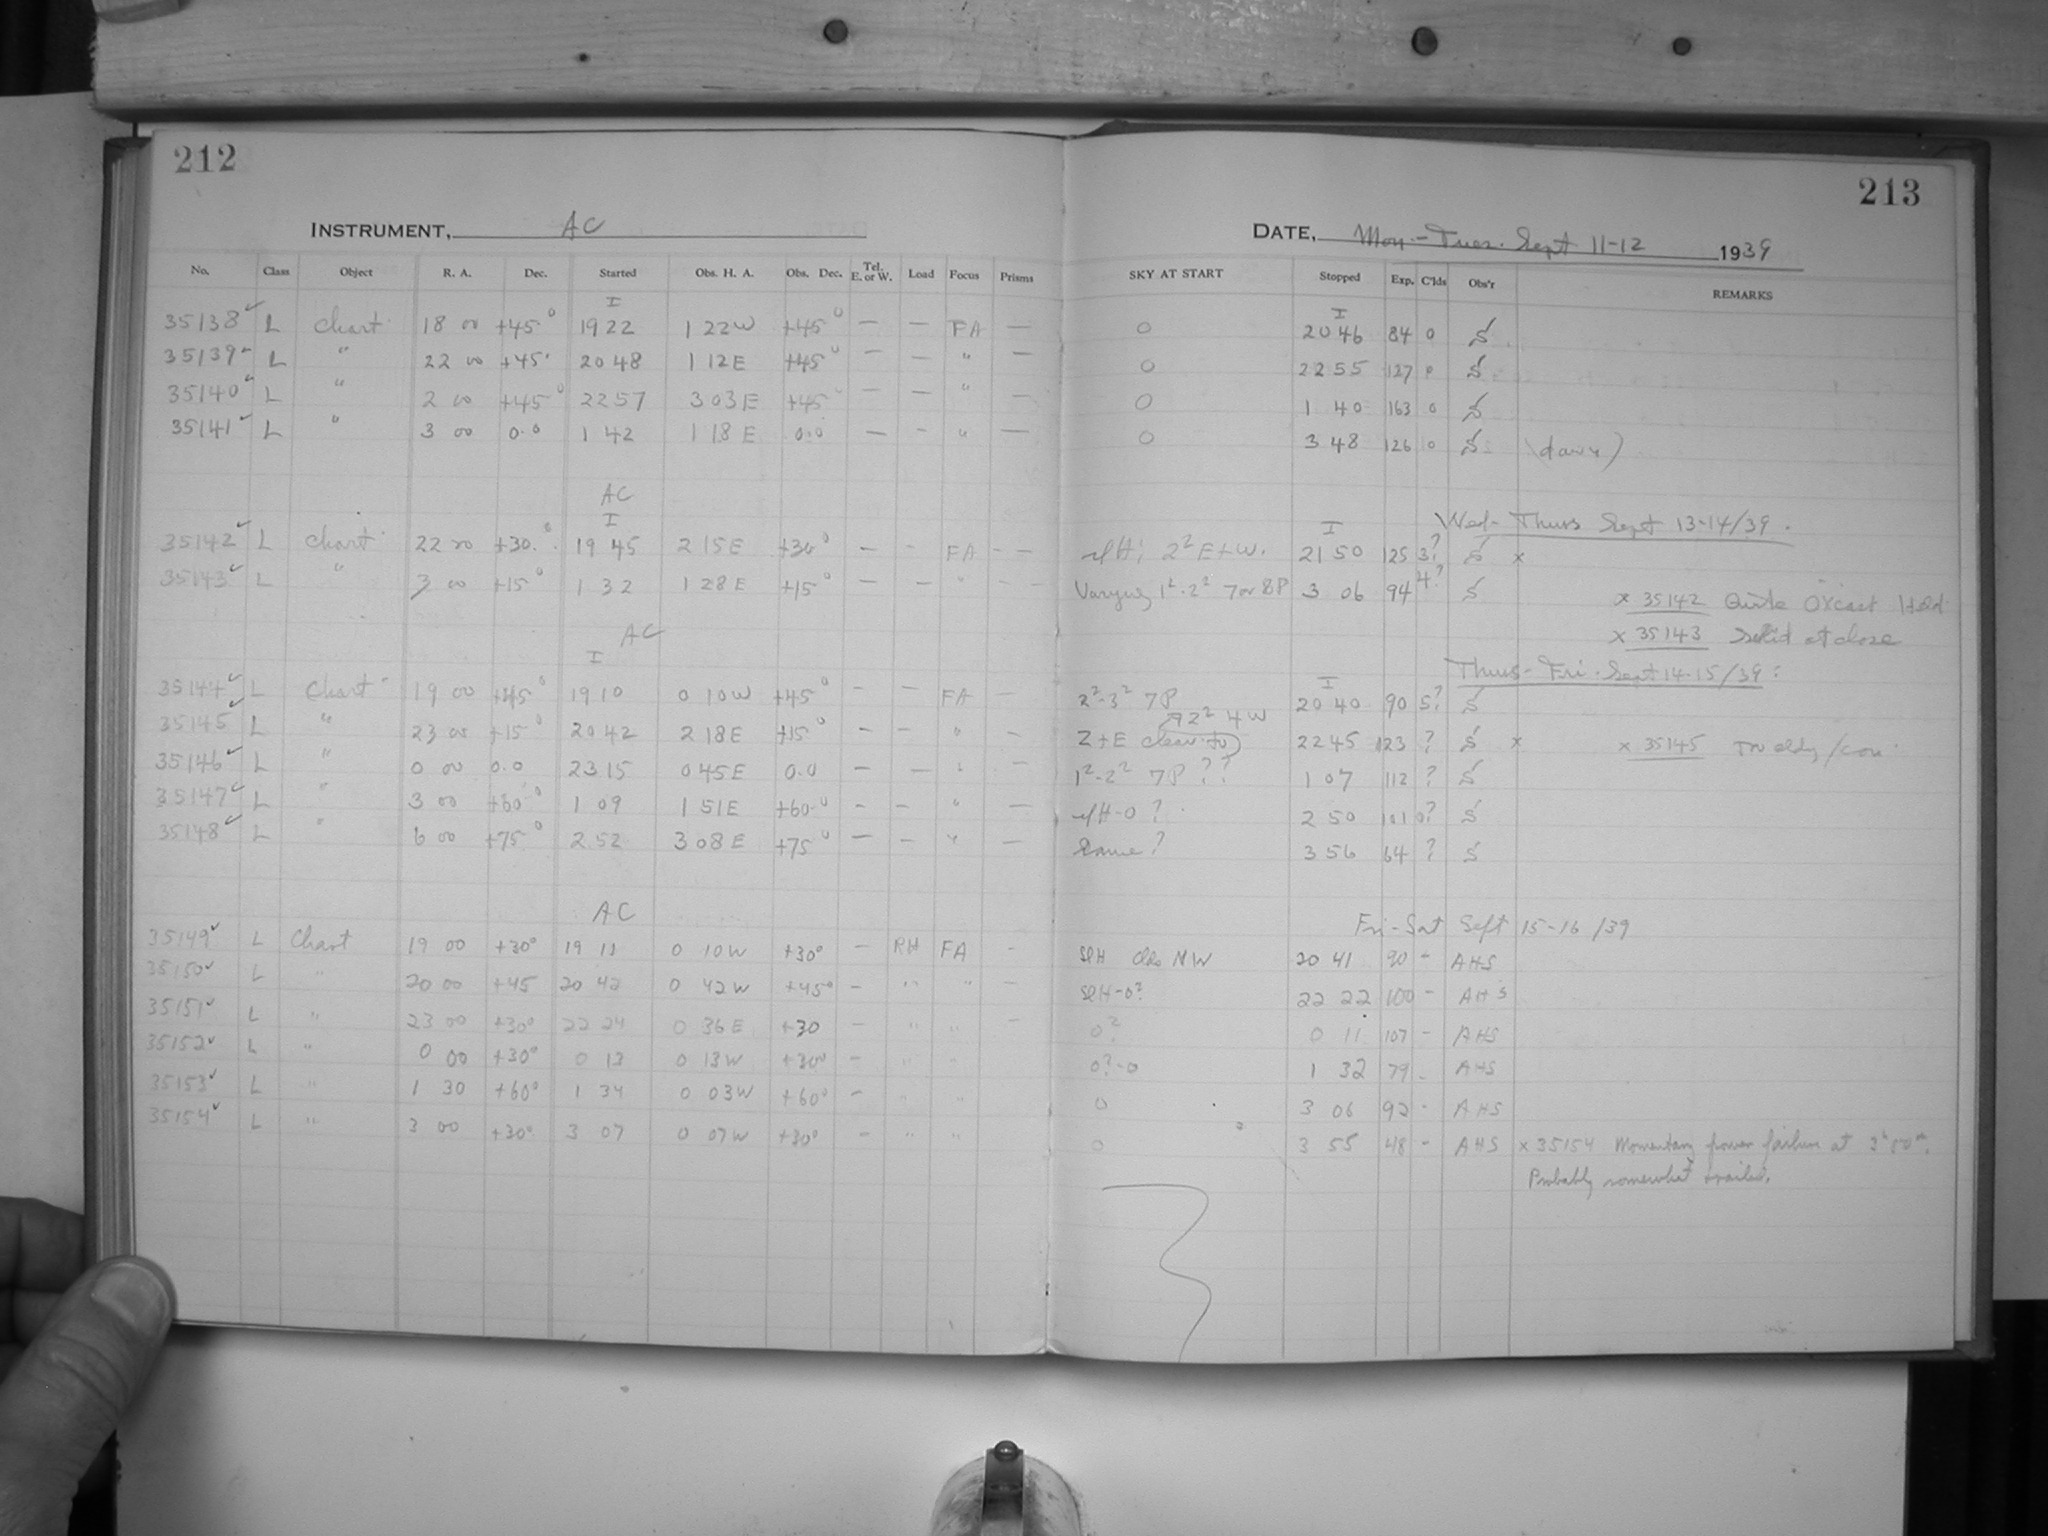 212
213
INSTRUMENT, AC
DATE, Mon.-Tues. Sept 11-12 1939
No. Class Object R. A. Dec. Started Obs. H. A. Obs. Dec. Tel. E. or W. Load Focus Prisms SKY AT START Stopped Exp. C'lds Obs'r REMARKS
I I
35138 ✓ L Chart 18 00 +45° 19 22 1 22W +45° — — FA — 0 20 46 84 0 S
35139 ✓ L " 22 00 +45° 20 48 1 12E +45° — — " — 0 22 55 127 0 S
35140 ✓ L " 2 00 +45° 22 57 3 03E +45° — — " — 0 1 40 163 0 S
35141 ✓ L " 3 00 0.0 1 42 1 18E 0.0 — — " — 0 3 48 126 0 S (dawn)
AC
Wed-Thurs Sept 13-14/39.
I I
35142 ✓ L Chart 22 20 +30.° 19 45 2 15E +30° — — FA — — H; 2² E+W. 21 50 125 3? S x
35143 ✓ L " 3 00 +15° 1 32 1 28E +15° — — " — — Varying 1²-2² 7 or 8P 3 06 94 4? S
x 35142 Quite O'cast Held
x 35143 Solid at close
AC
Thurs-Fri. Sept 14-15/39:
I I
35144 ✓ L Chart 19 00 +45° 19 10 0 10W +45° — — FA — 2²-3² 7P 20 40 90 5? S
35145 ✓ L " 23 00 +15° 20 42 2 18E +15° — — " — Z+E clear to 2² 4W 22 45 123 ? S x x 35145
35146 ✓ L " 0 00 0.0 23 15 0 45E 0.0 — — " — 1²-2² 7P ?? 1 07 112 ? S
35147 ✓ L " 3 00 +60.° 1 09 1 51E +60.° — — " — H-0? 2 50 101 0? S
35148 ✓ L " 6 00 +75° 2 52 3 08E +75° — — " — Same? 3 56 64 ? S
AC
Fri-Sat Sept 15-16/39
35149 ✓ L Chart 19 00 +30° 19 11 0 10W +30° — RH FA - SlH Clds NW 20 41 90 - AHS
35150 ✓ L " 20 00 +45 20 42 0 42W +45° — " " — SlH-0? 22 22 100 - AHS
35151 ✓ L " 23 00 +30° 22 24 0 36E +30 — " " — 0? 0 11 107 - AHS
35152 ✓ L " 0 00 +30° 0 13 0 13W +30° — " " 0?-0 1 32 79 - AHS
35153 ✓ L " 1 30 +60° 1 34 0 03W +60° — " " 0 3 06 92 - AHS
35154 ✓ L " 3 00 +30° 3 07 0 07W +30° — " " 0 3 55 48 - AHS x 35154 Momentary power failure at 3ʰ50ᵐ.
Probably somewhat trailed.